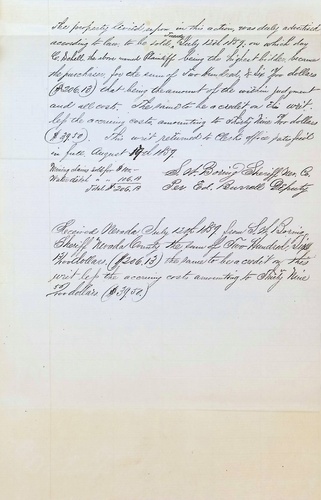 The property levied upon in this action, was duly advertised
according to law, to be sold, Tuesday July 12th 1889, on which day
C. the above named Plaintiff being the highest bidder, became
the purchaser, for the sum of Two Hundred & Six dollars
($206.13) that being the amount of the within judgment
and all costs. The same to be a credit on this writ.
less the accruing costs amounting to Thirty Nine dollars
($39.50). This writ returned to Clerks office satisfied
in full August 19th 1889.
Mining claims sold for $100.00
Water ditch " " 106.13
Total $206.13
S. H. Boring Sheriff Nev Co.
Per Ed. Burrall Deputy
Received Nevada July 12th 1889 from S. H. Boring,
Sheriff Nevada County the sum of Two Hundred Six
dollars, ($206.13) the same to be a credit on this
writ less the accruing costs amounting to Thirty Nine
50/100 dollars ($39.50.)